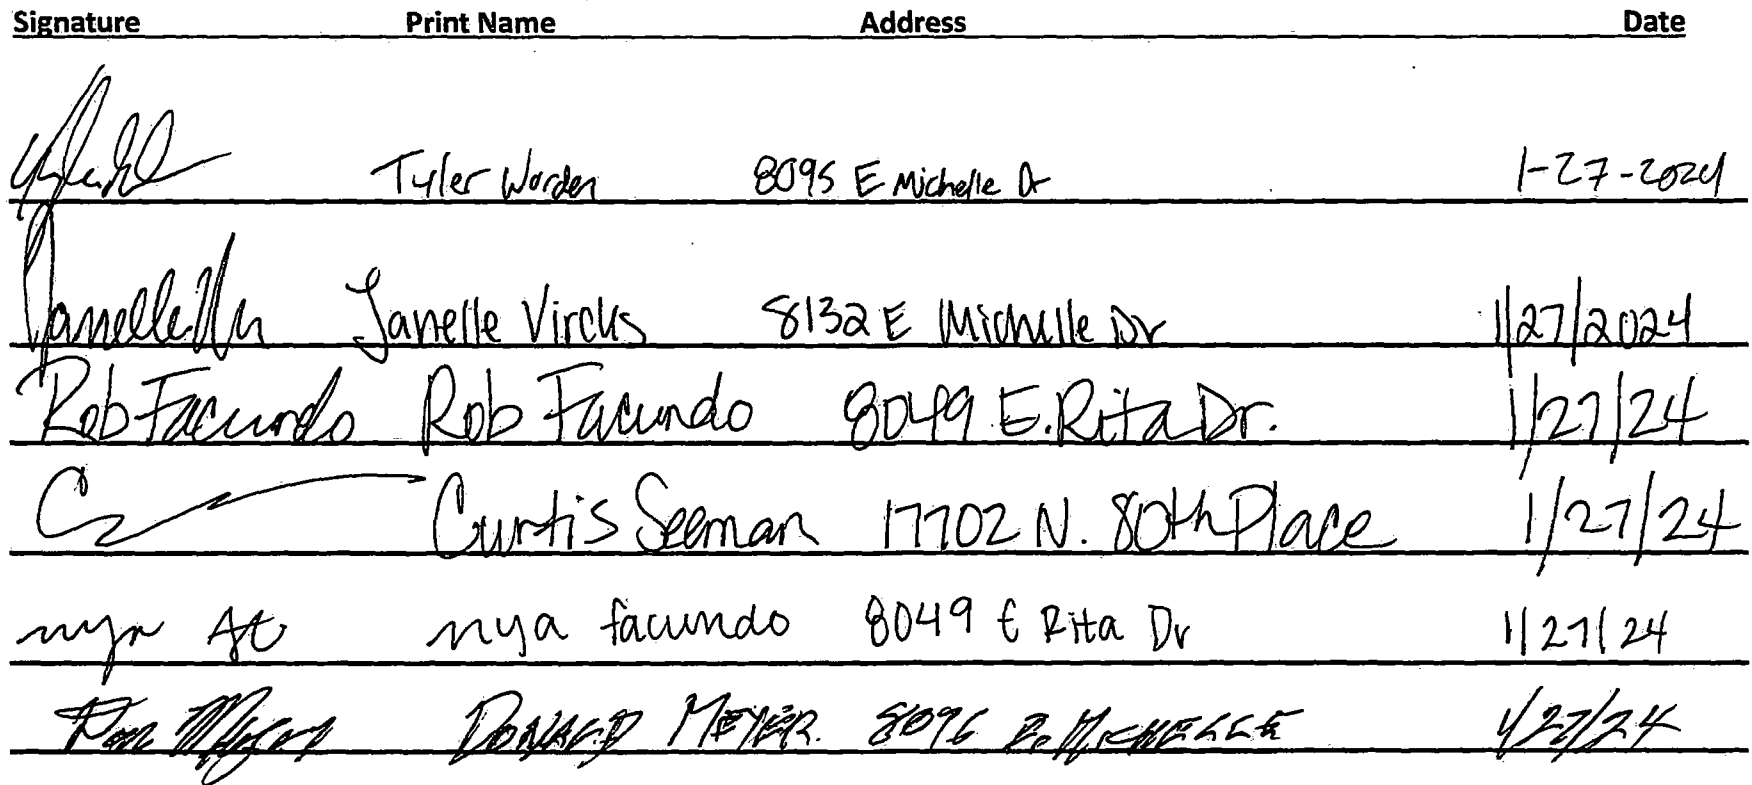 Signature Print Name Address Date
Tyler Worden 8095 E Michelle Dr 1-27-2024
Janelle Vircks 8132 E Michelle Dr 1/27/2024
Rob Facundo Rob Facundo 8049 E. Rita Dr. 1/27/24
Curtis Seeman 17702 N. 80th Place 1/27/24
nya nya facundo 8049 E Rita Dr 1/27/24
Don Meyer DONALD MEYER 8096 E. MICHELLE 1/27/24